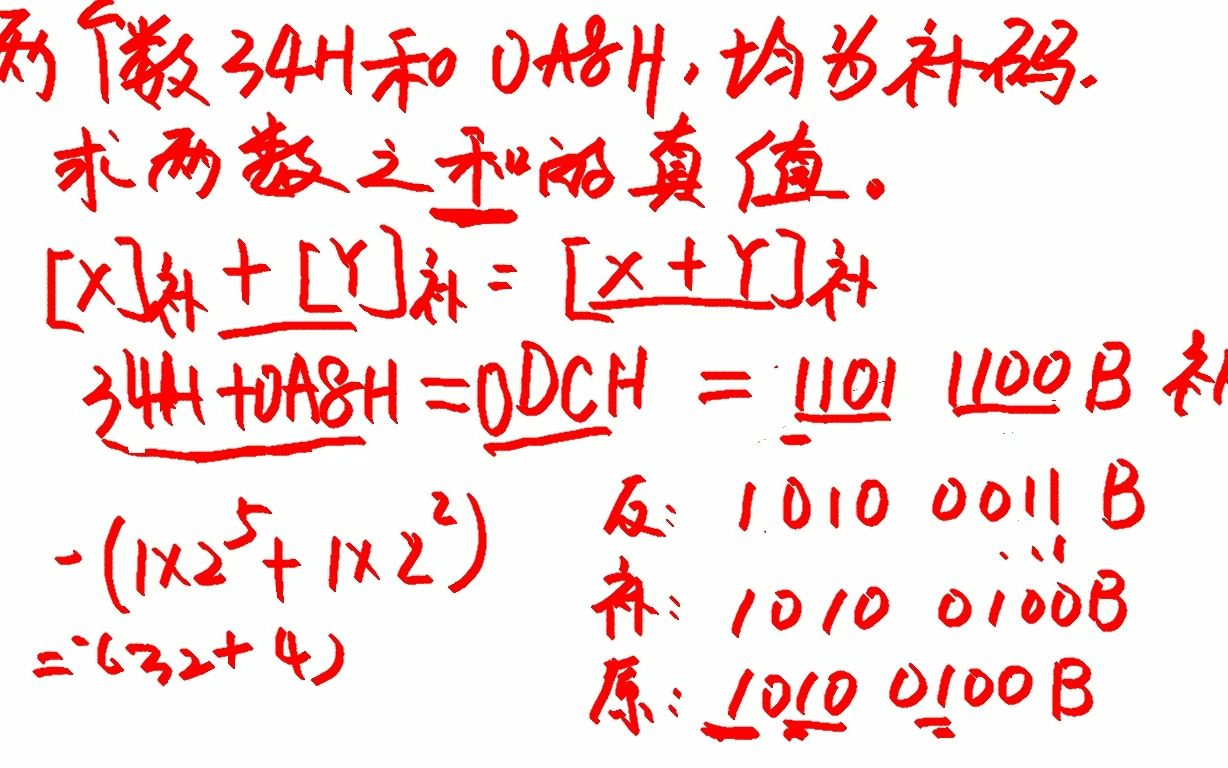 两个数34H和0A8H,均为补码.
求两数之和的真值.
[X]补+[Y]补=[X+Y]补
34H+0A8H=0DCH=1101 1100B 补
-(1×2⁵+1×2²)
=-(32+4)
反: 1010 0011B
补: 1010 0100B
原: 1010 0100B